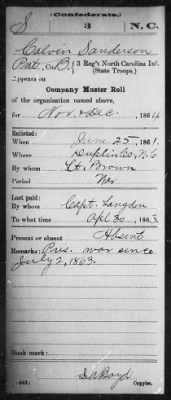 (Confederate.)
S 3 N.C.
Calvin Sanderson
Pvt., Co. B, 3 Reg't North Carolina Inf.
(State Troops.)
Appears on
Company Muster Roll
of the organization named above,
for Nov & Dec., 1864
Enlisted:
When June 25, 1861.
Where Duplin Co, N.C
By whom Lt. Brown
Period War
Last paid:
By whom Capt. Langdon
To what time Apl 30, 1863
Present or absent Absent
Remarks: Pris. war since
July 2, 1863.
Book mark:
(642) Copyist.